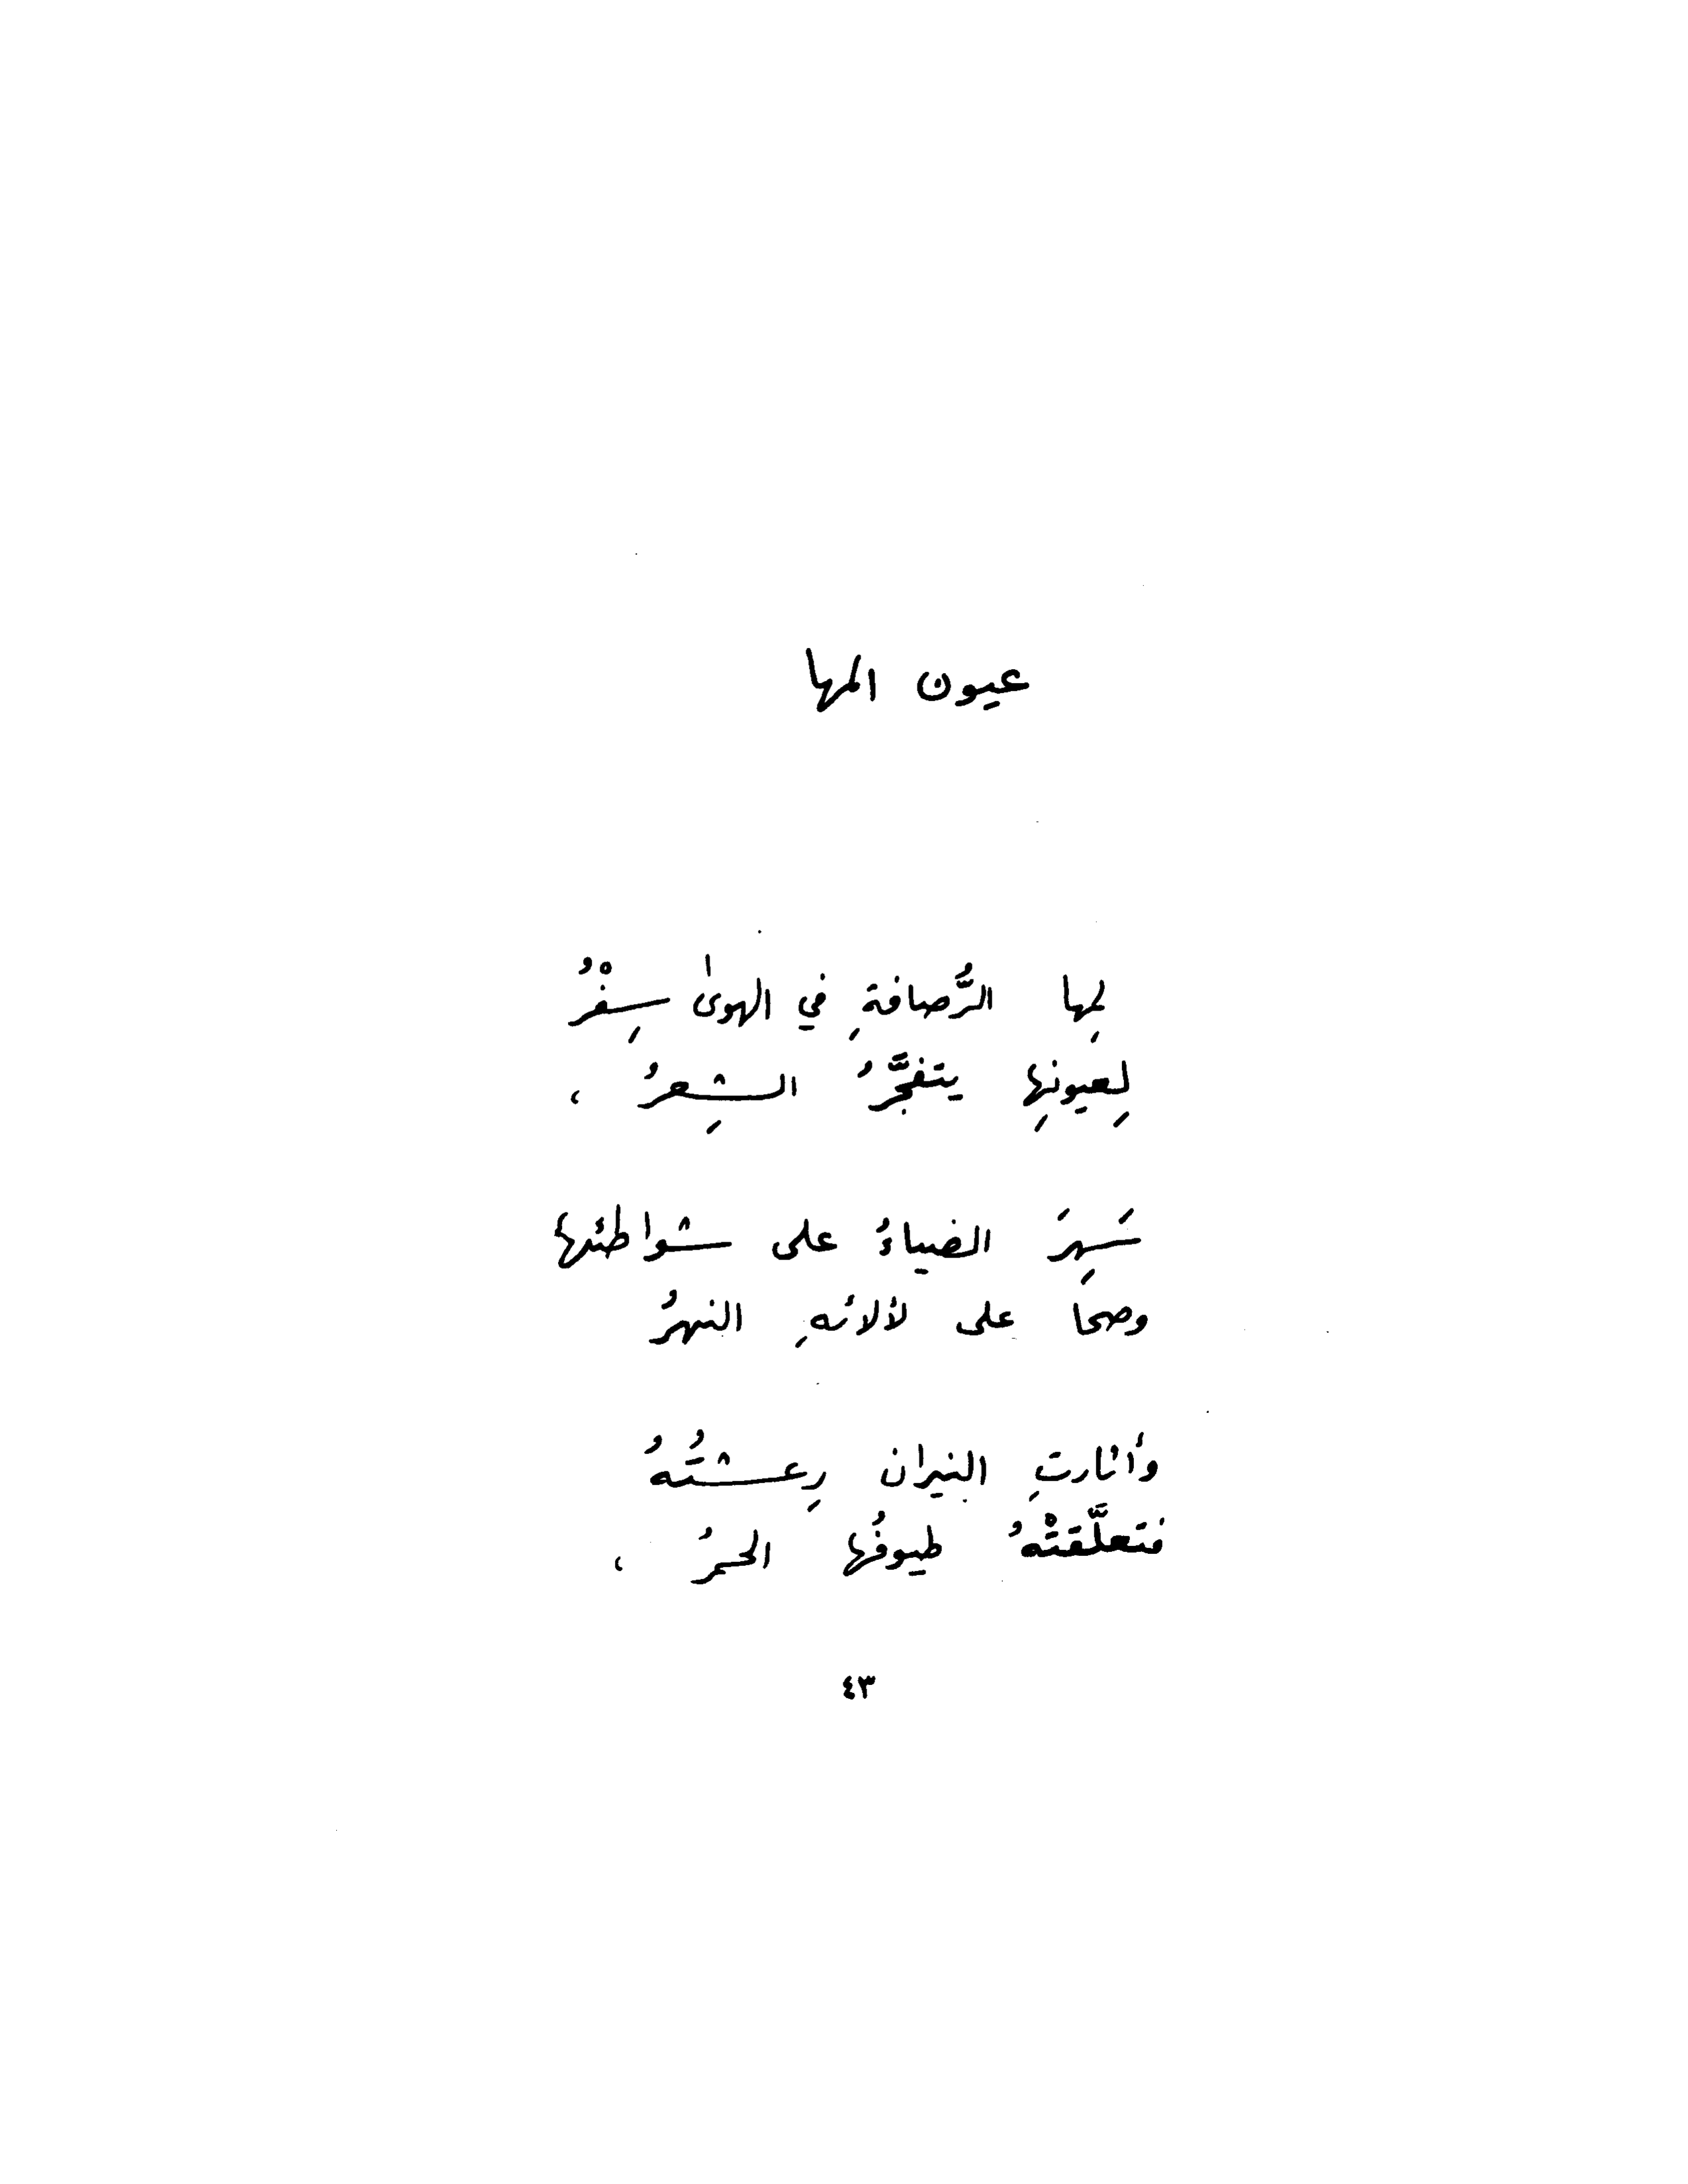 عيون المها
لِمها الرُّصافةِ في الهوىٰ سِفْرُ
لِعيونِها يتفجَّرُ الشِعرُ ،
سَهِرَ الضياءُ على شواطئها
وصحا على لألائهِ النهرُ
وأثارتِ النيران رِعشتُهُ
فتعلَّقتْهُ طيوفُها الحمرُ ،
٤٣